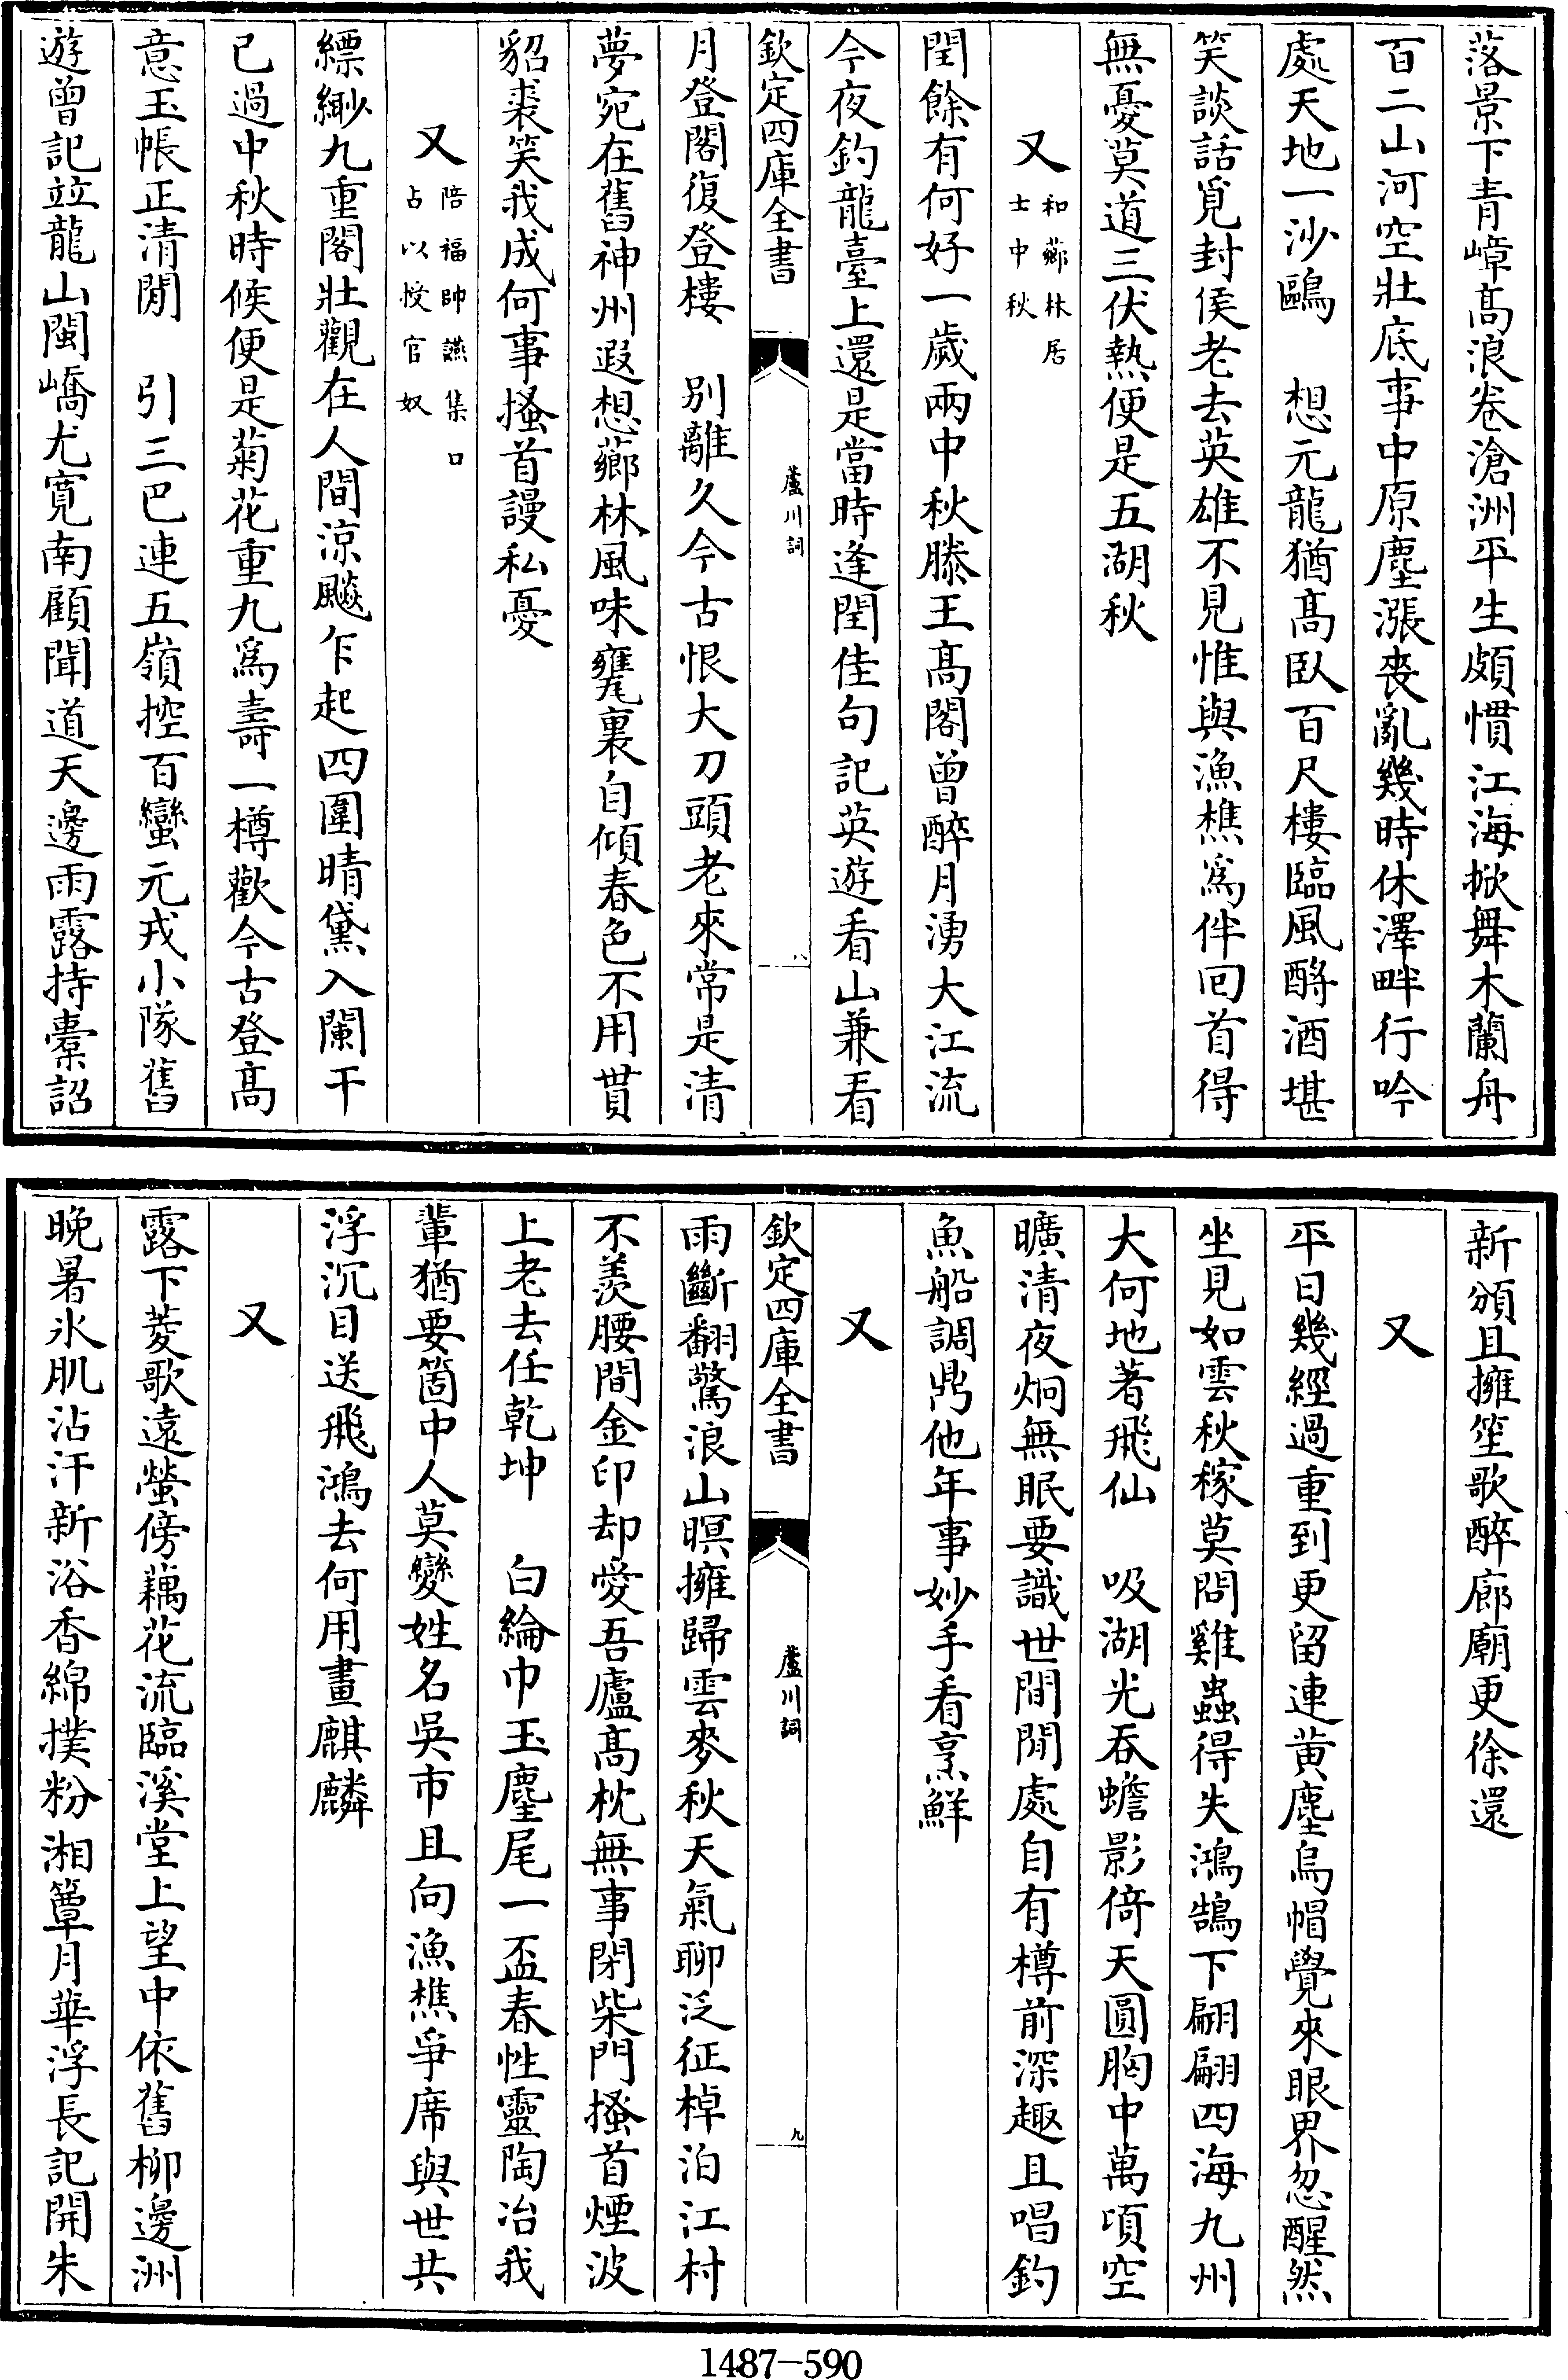 落景下青嶂髙浪卷滄洲平生頗慣江海掀舞木蘭舟
百二山河空壯底事中原塵漲喪亂幾時休澤畔行吟
處天地一沙鷗　想元龍猶髙臥百尺樓臨風酹酒堪
笑談話覓封侯老去英雄不見惟與漁樵爲伴回首得
無憂莫道三伏熱便是五湖秋
又和薌林居士中秋
閏餘有何好一歲兩中秋滕王髙閣曾醉月湧大江流
今夜釣龍臺上還是當時逢閏佳句記英遊看山兼看
欽定四庫全書　蘆川詞　八
月登閣復登樓　别離久今古恨大刀頭老來常是清
夢宛在舊神州遐想薌林風味甕裏自傾春色不用貰
貂裘笑我成何事搔首謾私憂
又陪福帥讌集口占以授官奴
縹緲九重閣壯觀在人間涼飈乍起四圍晴黛入闌干
已過中秋時候便是菊花重九爲壽一樽歡今古登髙
意玉帳正清閒　引三巴連五嶺控百蠻元戎小隊舊
遊曾記竝龍山閩嶠尤寛南顧聞道天邊雨露持橐詔
新頒且擁笙歌醉廊廟更徐還
又
平日幾經過重到更留連黄塵烏帽覺來眼界忽醒然
坐見如雲秋稼莫問雞蟲得失鴻鵠下翩翩四海九州
大何地著飛仙　吸湖光吞蟾影倚天圓胸中萬頃空
曠清夜炯無眠要識世間閒處自有樽前深趣且唱釣
魚船調鼎他年事妙手看烹鮮
又
欽定四庫全書　蘆川詞　九
雨斷翻驚浪山暝擁歸雲麥秋天氣聊泛征棹泊江村
不羨腰間金印却愛吾廬髙枕無事閉柴門搔首煙波
上老去任乾坤　白綸巾玉麈尾一盃春性靈陶冶我
輩猶要箇中人莫變姓名吳市且向漁樵爭席與世共
浮沉目送飛鴻去何用畫麒麟
又
露下菱歌遠螢傍藕花流臨溪堂上望中依舊柳邊洲
晚暑氷肌沾汗新浴香綿撲粉湘簟月華浮長記開朱
1487-590